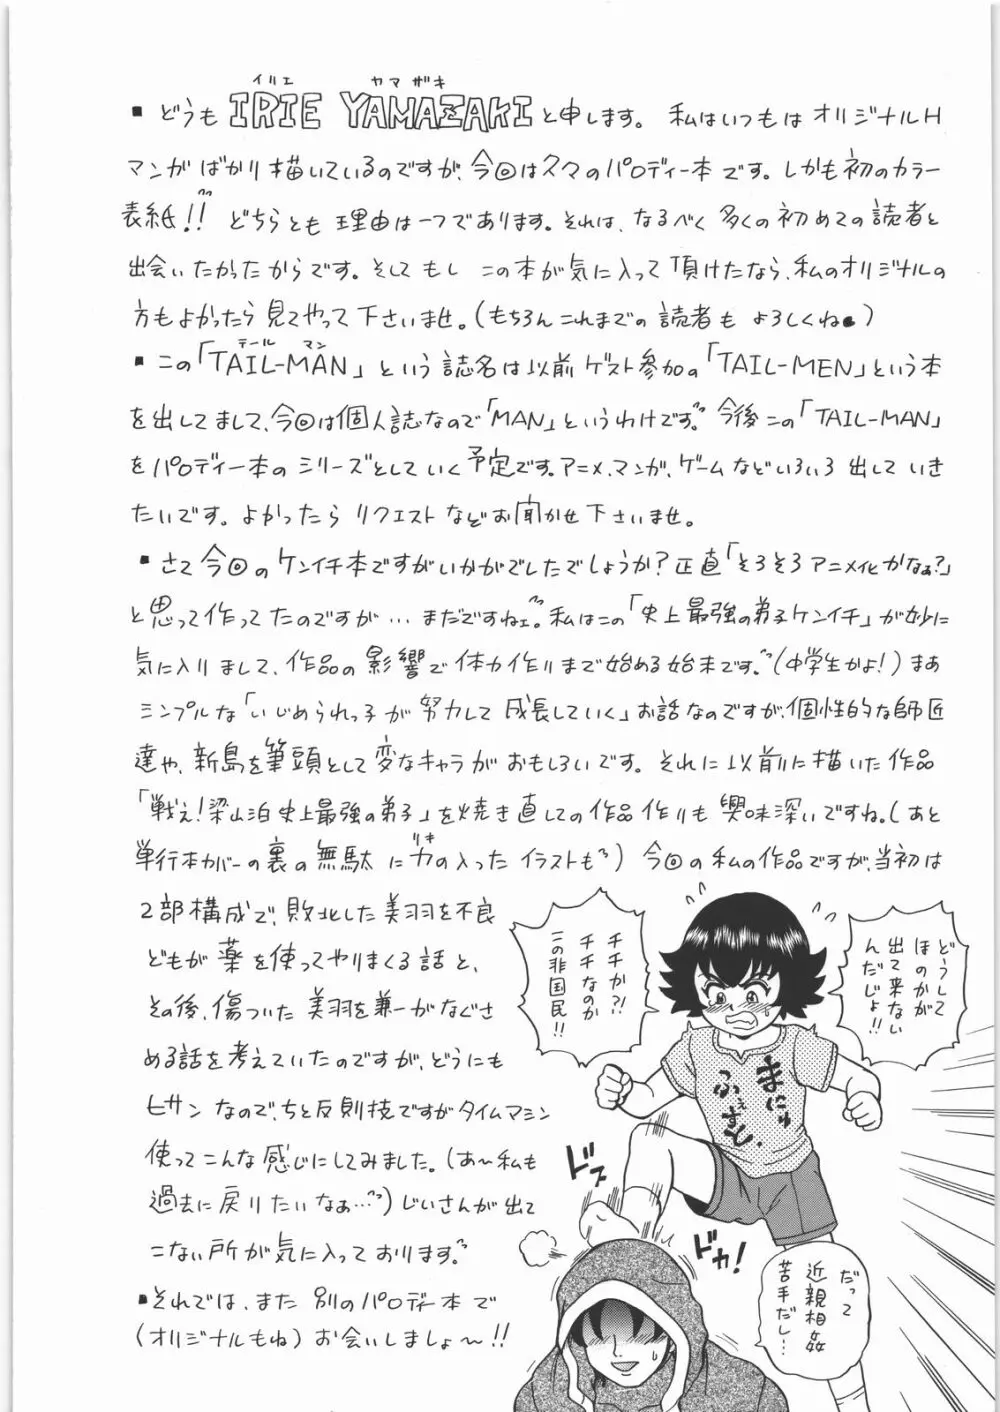 イリエ ヤマザキ
▪どうもIRIE YAMAZAKIと申します。私はいつもはオリジナルH
マンガばかり描いているのですが、今回は久々のパロディー本です。しかも初のカラー
表紙!! どちらとも理由は一つであります。それは、なるべく多くの初めての読者と
出会いたかったからです。そしてもし この本が気に入って頂けたなら、私のオリジナルの
方もよかったら見てやって下さいませ。(もちろんこれまでの読者も よろしくね)
テール マン
▪この「TAIL-MAN」という誌名は以前ゲスト参加の「TAIL-MEN」という本
を出してまして、今回は個人誌なので「MAN」というわけです。今後この「TAIL-MAN」
をパロディー本のシリーズとしていく予定です。アニメ、マンガ、ゲームなどいろいろ出していき
たいです。よかったらリクエストなどお聞かせ下さいませ。
▪さて今回のケンイチ本ですがいかがでしたでしょうか?正直「そろそろアニメ化かなぁ?」
と思って作ってたのですが…まだですねェ。私はこの「史上最強の弟子ケンイチ」が妙に
気に入りまして、作品の影響で体力作りまで始める始末です。(中学生かよ!)まあ
シンプルな「いじめられっ子が努力して成長していく」お話なのですが、個性的な師匠
達や、新島を筆頭として変なキャラがおもしろいです。それに以前に描いた作品
「戦え!梁山泊史上最強の弟子」を焼き直しての作品作りも興味深いですね。(あと
単行本カバーの裏の無駄に力の入ったイラストも)今回の私の作品ですが、当初は
リキ
2部構成で、敗北した美羽を不良
どもが薬を使ってやりまくる話と、
その後、傷ついた美羽を兼一がなぐさ
める話を考えていたのですが、どうにも
ヒサンなので、ちと反則技ですがタイムマシン
使ってこんな感じにしてみました。(あ〜私も
過去に戻りたいなぁ…)じいさんが出て
こない所が気に入っております。
▪それでは、また別のパロディー本で
(オリジナルもね)お会いしましょ〜!!
どうして
ほのかが
出て来ない
んだじょ!!
チチか?!
チチなのか
この非国民!!
まにゅ
ふぇすと、
ドズ
ドカ!
だって
近親相姦
苦手だし…